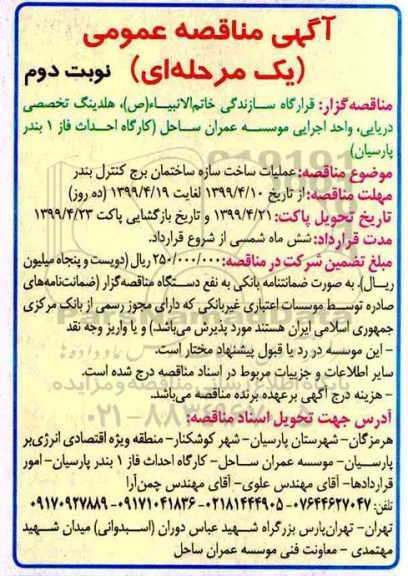 آگهی مناقصه عمومی
(یک مرحله‌ای) نوبت دوم
مناقصه‌گزار: قرارگاه سازندگی خاتم‌الانبیاء(ص)، هلدینگ تخصصی
دریایی، واحد اجرایی موسسه عمران ساحل (کارگاه احداث فاز ۱ بندر
پارسیان)
موضوع مناقصه: عملیات ساخت سازه ساختمان برج کنترل بندر
مهلت مناقصه: از تاریخ ۱۳۹۹/۴/۱۰ لغایت ۱۳۹۹/۴/۱۹ (ده روز)
تاریخ تحویل پاکت: ۱۳۹۹/۴/۲۱ و تاریخ بازگشایی پاکت ۱۳۹۹/۴/۲۳
مدت قرارداد: شش ماه شمسی از شروع قرارداد.
مبلغ تضمین شرکت در مناقصه: ۲۵۰/۰۰۰/۰۰۰ ریال (دویست و پنجاه میلیون
ریال). به صورت ضمانتنامه بانکی به نفع دستگاه مناقصه‌گزار (ضمانت‌نامه‌های
صادره توسط موسسات اعتباری غیربانکی که دارای مجوز رسمی از بانک مرکزی
جمهوری اسلامی ایران هستند مورد پذیرش می‌باشد). و یا واریز وجه نقد
- این موسسه در رد یا قبول پیشنهاد مختار است.
سایر اطلاعات و جزییات مربوط در اسناد مناقصه درج شده است.
- هزینه درج آگهی برعهده برنده مناقصه می‌باشد.
آدرس جهت تحویل اسناد مناقصه:
هرمزگان- شهرستان پارسیان- شهر کوشکنار- منطقه ویژه اقتصادی انرژی‌بر
پارسیان- موسسه عمران ساحل- کارگاه احداث فاز ۱ بندر پارسیان- امور
قراردادها- آقای مهندس علوی- آقای مهندس چمن‌آرا
تلفن: ۰۷۶۴۴۶۲۷۰۴۷- ۰۲۱۸۱۴۴۴۹۰۵- ۰۹۱۷۱۰۴۱۸۳۶- ۰۹۱۷۰۹۲۷۸۸۹
تهران- تهران‌پارس بزرگراه شهید عباس دوران (اسبدوانی) میدان شهید
مهتمدی - معاونت فنی موسسه عمران ساحل